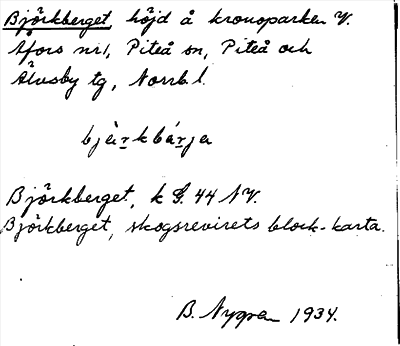 Björkberget, höjd å kronoparken V.
Åfors nr 1, Piteå sn, Piteå och
Älvsby tg, Norrb. l.
bjärkbárja
Björkberget, k G. 44 NV.
Björkberget, skogsrevirets block-karta.
B. Nygren 1934.